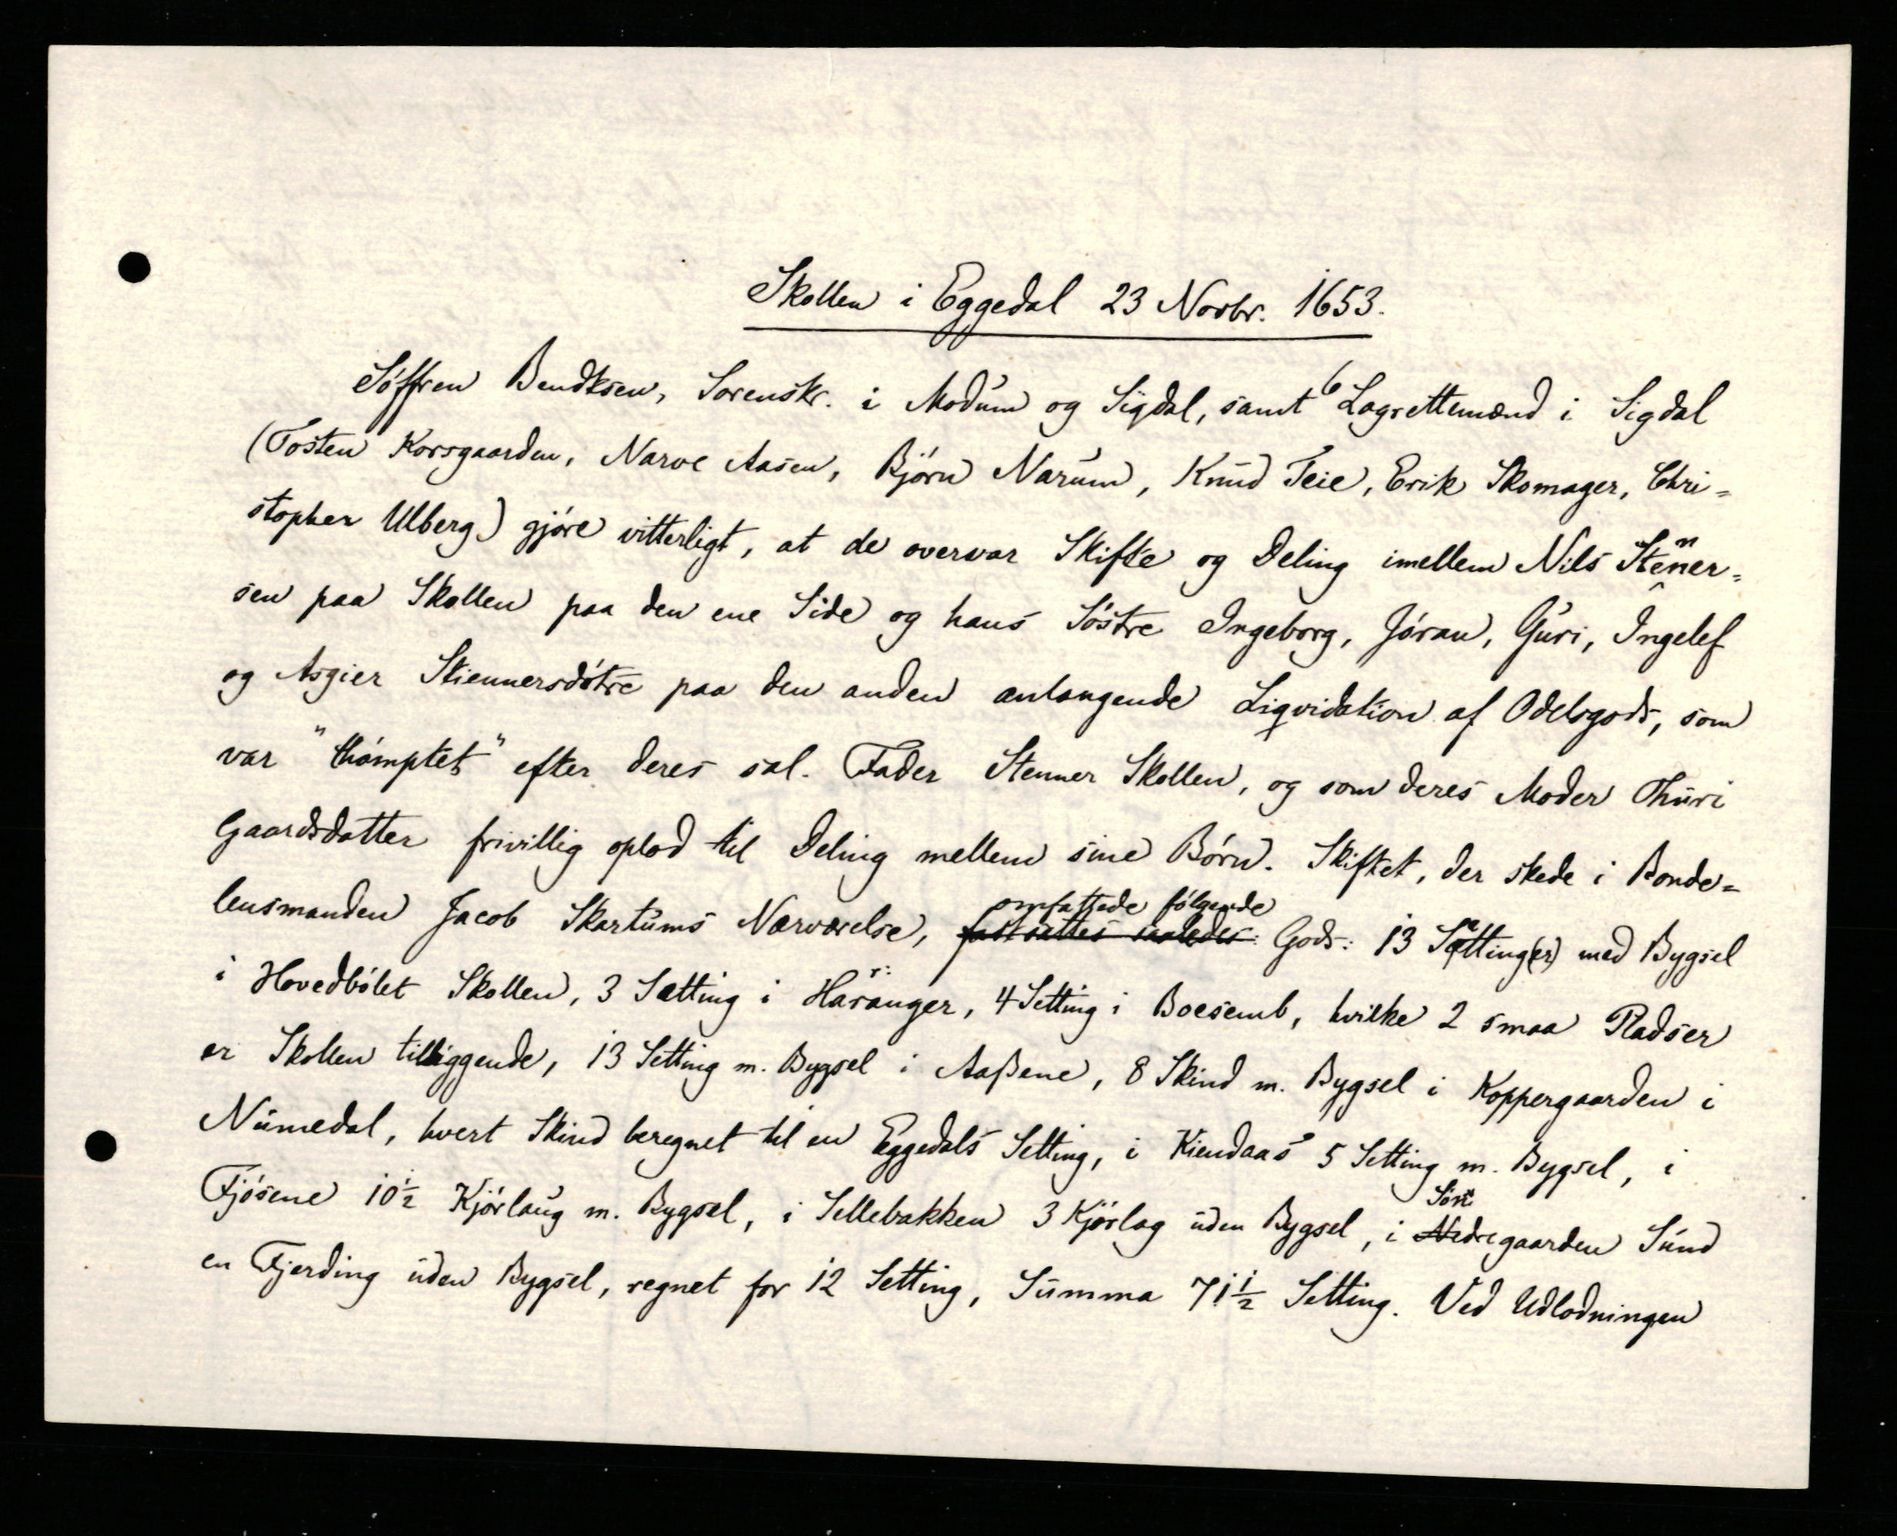 Skollen i Eggedal 23 Novbr. 1653.
Söffren Bendksen, Sorenskr. i Modum og Sigdal, samt 6 Lagrettemænd i Sigdal
(Tosten Korsgaarden, Narve Aasen, Björn Narum, Knud Teie, Erik Skomager, Chri=
stopher Ulberg) gjöre vitterligt, at de overvar Skifte og Deling imellem Nils Stenner=
sen paa Skollen paa den ene Side og hans Söstre Ingeborg, Jöran, Guri, Ingelef
og Asgier Stiennersdötre paa den anden anlangende Liqvidation af Odelsgods, som
var "thömptet" efter deres sal. Fader Stenner Skollen, og som deres Moder Thuri
Gaardsdatter frivillig oplod til Deling mellem sine Börn. Skiftet, der skede i Bonde=
lensmanden Jacob Skartums Nærværelse, fastsattes saaledes: omfattede fölgende Gods: 13 Setting(er) med Bygsel
i Hovedbölet Skollen, 3 Setting i Haranger, 4 Setting i Boesemb, hvilke 2 smaa Pladser
er Skollen tilliggende, 13 Setting m. Bygsel i Aaßene, 8 Skind m. Bygsel i Koppergaarden i
Numedal, hvert Skind beregnet til en Eggedals Setting, i Kiendaas 5 Setting m. Bygsel, i
Fjösene 10½ Kjörlaug m. Bygsel, i Sellebakken 3 Kjörlag uden Bygsel, i Nedre Söre gaarden Sund
en Fjerding uden Bygsel, regnet for 12 Setting, Summa 71½ Setting. Ved Udlodningen